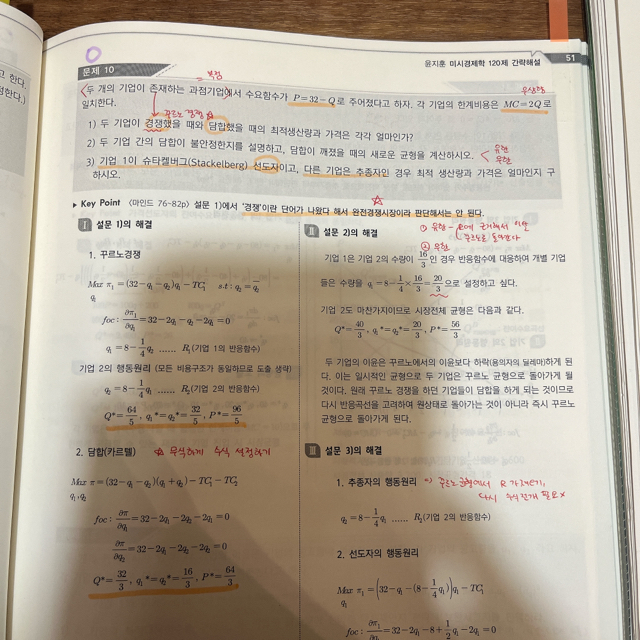 윤지훈 미시경제학 120제 간략해설 51
문제 10
= 복점
우상향
두 개의 기업이 존재하는 과점기업에서 수요함수가 P=32-Q로 주어졌다고 하자. 각 기업의 한계비용은 MC=2Q로
일치한다.
꾸르노 경쟁
1) 두 기업이 경쟁했을 때와 담합했을 때의 최적생산량과 가격은 각각 얼마인가?
2) 두 기업 간의 담합이 불안정한지를 설명하고, 담합이 깨졌을 때의 새로운 균형을 계산하시오.
유한
무한
3) 기업 1이 슈타켈버그(Stackelberg) 선도자이고, 다른 기업은 추종자인 경우 최적 생산량과 가격은 얼마인지 구
하시오.
▶ Key Point 〈마인드 76~82p〉 설문 1)에서 '경쟁'이란 단어가 나왔다 해서 완전경쟁시장이라 판단해서는 안 된다.
Ⅰ 설문 1)의 해결
1. 꾸르노경쟁
Max π₁=(32-q₁-q₂)q₁-TC₁ s.t : q₂=q̄₂
q₁
foc : ∂π₁/∂q₁=32-2q₁-q₂-2q₁=0
q₁=8-1/4 q₂ ...... R₁(기업 1의 반응함수)
기업 2의 행동원리 (모든 비용구조가 동일하므로 도출 생략)
q₂=8-1/4 q₁ ...... R₂(기업 2의 반응함수)
Q*=64/5, q₁*=q₂*=32/5, P*=96/5
2. 담합(카르텔) ☆ 무식하게 수식 설정하기
Max π=(32-q₁-q₂)(q₁+q₂)-TC₁-TC₂
q₁,q₂
foc : ∂π/∂q₁=32-2q₁-2q₂-2q₁=0
∂π/∂q₂=32-2q₁-2q₂-2q₂=0
Q*=32/3, q₁*=q₂*=16/3, P*=64/3
Ⅱ 설문 2)의 해결
① 유한 -
꾸르노로 돌아간다
② 무한
기업 1은 기업 2의 수량이 16/3인 경우 반응함수에 대응하여 개별 기업
들은 수량을 q₁=8-1/4×16/3=20/3으로 설정하고 싶다.
기업 2도 마찬가지이므로 시장전체 균형은 다음과 같다.
Q*=40/3, q₁*=q₂*=20/3, P*=56/3
두 기업의 이윤은 꾸르노에서의 이윤보다 하락(용의자의 딜레마)하게 된
다. 이는 일시적인 균형으로 두 기업은 꾸르노 균형으로 돌아가게 될
것이다. 원래 꾸르노 경쟁을 하던 기업들이 담합을 하게 되는 것이므로
다시 반응곡선을 고려하여 원상태로 돌아가는 것이 아니라 즉시 꾸르노
균형으로 돌아가게 된다.
Ⅲ 설문 3)의 해결
1. 추종자의 행동원리
꾸르노균형에서 R 가져오기,
다시 수식전개 필요 x
q₂=8-1/4 q₁ ...... R₂(기업 2의 반응함수)
2. 선도자의 행동원리
Max π₁=(32-q₁-(8-1/4 q₁))q₁-TC₁
q₂
foc : ∂π₁/∂q₁=32-2q₁-8+1/2 q₁-2q₁=0